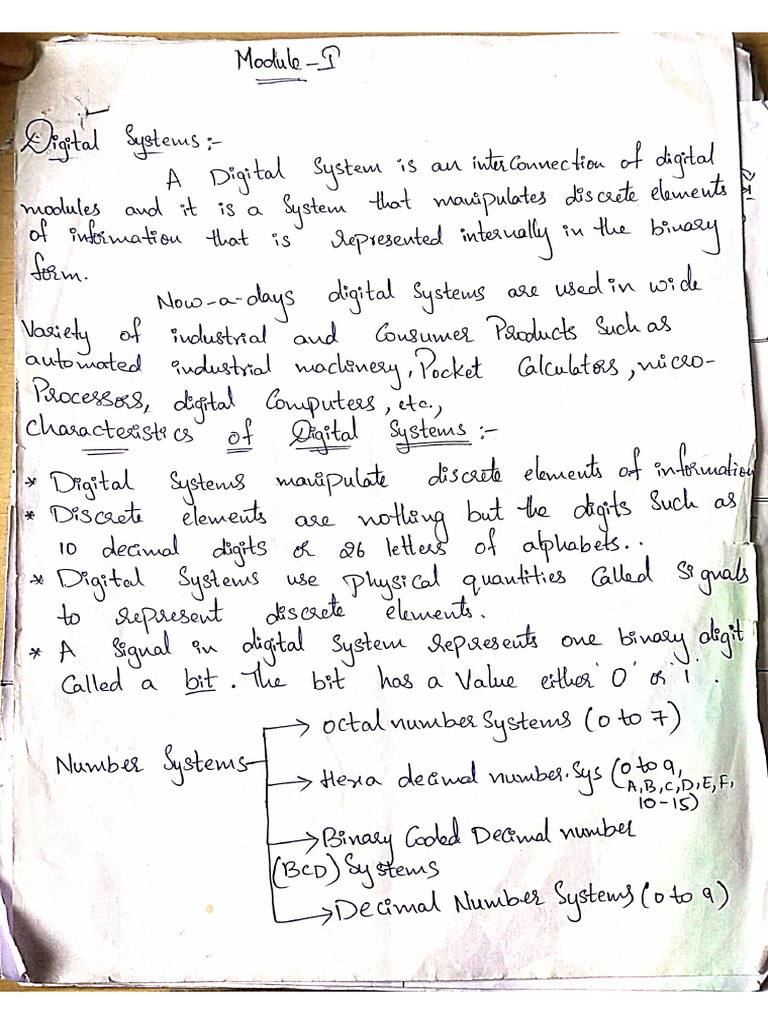 Module-I
Digital Systems:-
A Digital System is an interconnection of digital
modules and it is a System that manipulates discrete elements
of information that is represented internally in the binary
form.
Now-a-days digital Systems are used in wide
Variety of industrial and Consumer Products Such as
automated industrial machinery, Pocket Calculators, micro-
Processors, digital Computers, etc.,
Characteristics of Digital Systems:-
* Digital Systems manipulate discrete elements of information
* Discrete elements are nothing but the digits Such as
10 decimal digits or 26 letters of alphabets..
* Digital Systems use Physical quantities Called Signals
to represent discrete elements.
* A Signal in digital System represents one binary digit
Called a bit. The bit has a Value either '0' or '1'.
Number Systems
octal number Systems (0 to 7)
Hexa decimal number.Sys (0 to 9,
A,B,C,D,E,F,
10-15)
Binary Coded Decimal number
(BCD) Systems
Decimal Number Systems (0 to 9)